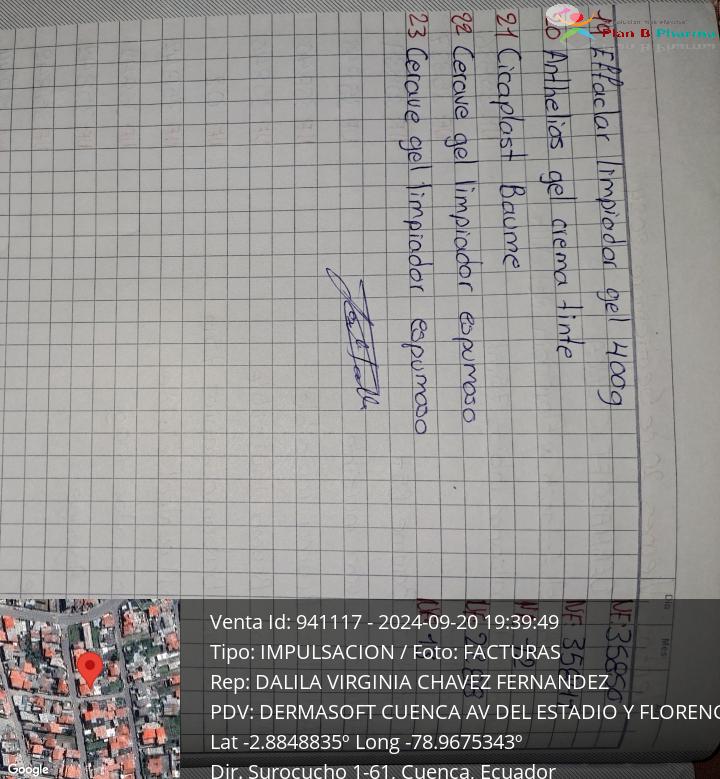 19 Effaclar limpiador gel 400g
20 Anthelios gel crema tinte
21 Cicaplast Baume
22 Cerave gel limpiador espumoso
23 Cerave gel limpiador espumoso
Plan B Pharma
Dia Mes
Venta Id: 941117 - 2024-09-20 19:39:49
Tipo: IMPULSACION / Foto: FACTURAS
Rep: DALILA VIRGINIA CHAVEZ FERNANDEZ
PDV: DERMASOFT CUENCA AV DEL ESTADIO Y FLORENC
Lat -2.8848835º Long -78.9675343º
Dir. Surocucho 1-61, Cuenca, Ecuador
Google